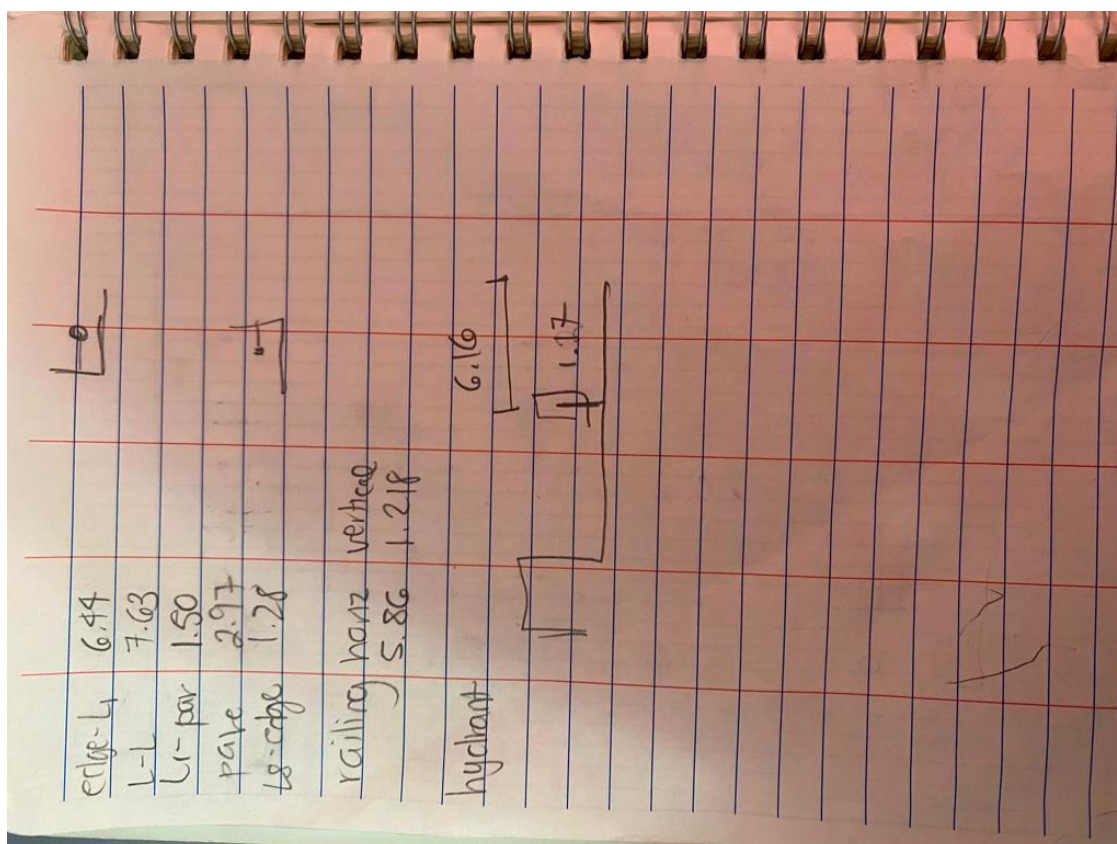 edge-L1 6.44
L-L 7.63
L1-par 1.50
pave 2.97
L8-edge 1.28
railing horiz vertical
5.86 1.218
hydrant
6.16
1.27